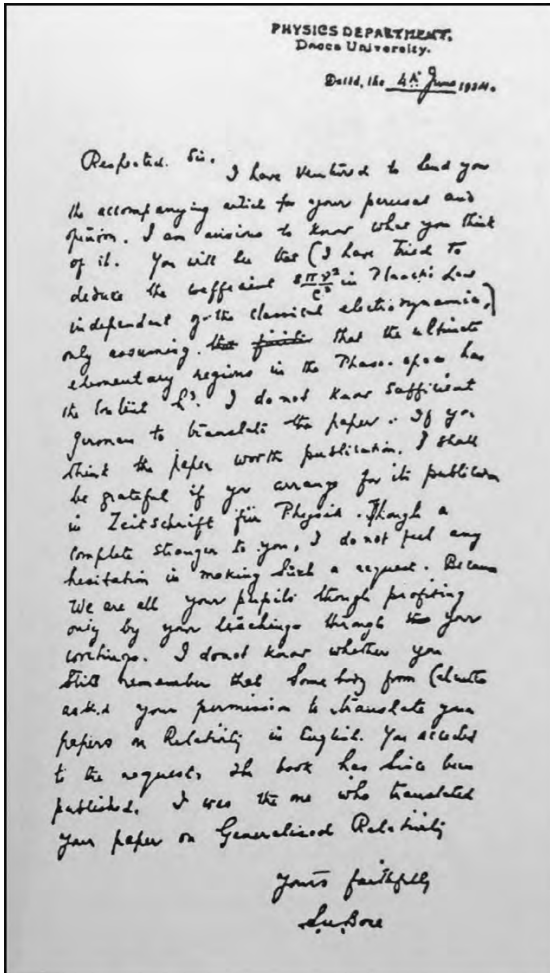 PHYSICS DEPARTMENT,
Dacca University.
Dated, the 4th June 1924.
Respected Sir,
I have ventured to send you
the accompanying article for your perusal and
opinion. I am anxious to know what you think
of it. You will see that (I have tried to
deduce the coefficient 8πν²/c³ in Planck's Law
independent of the classical electrodynamics,)
only assuming that the ultimate
elementary regions in the Phase-space has
the content h³. I do not know sufficient
German to translate the paper. If you
think the paper worth publication, I shall
be grateful if you arrange for its publication
in Zeitschrift für Physik. Though a
complete stranger to you, I do not feel any
hesitation in making such a request. Because
We are all your pupils though profiting
only by your teachings through your
writings. I donot know whether you
still remember that Somebody from Calcutta
asked your permission to translate your
papers on Relativity in English. You acceded
to the request. The book has since been
published. I was the one who translated
your paper on Generalised Relativity
Yours faithfully
S.N. Bose